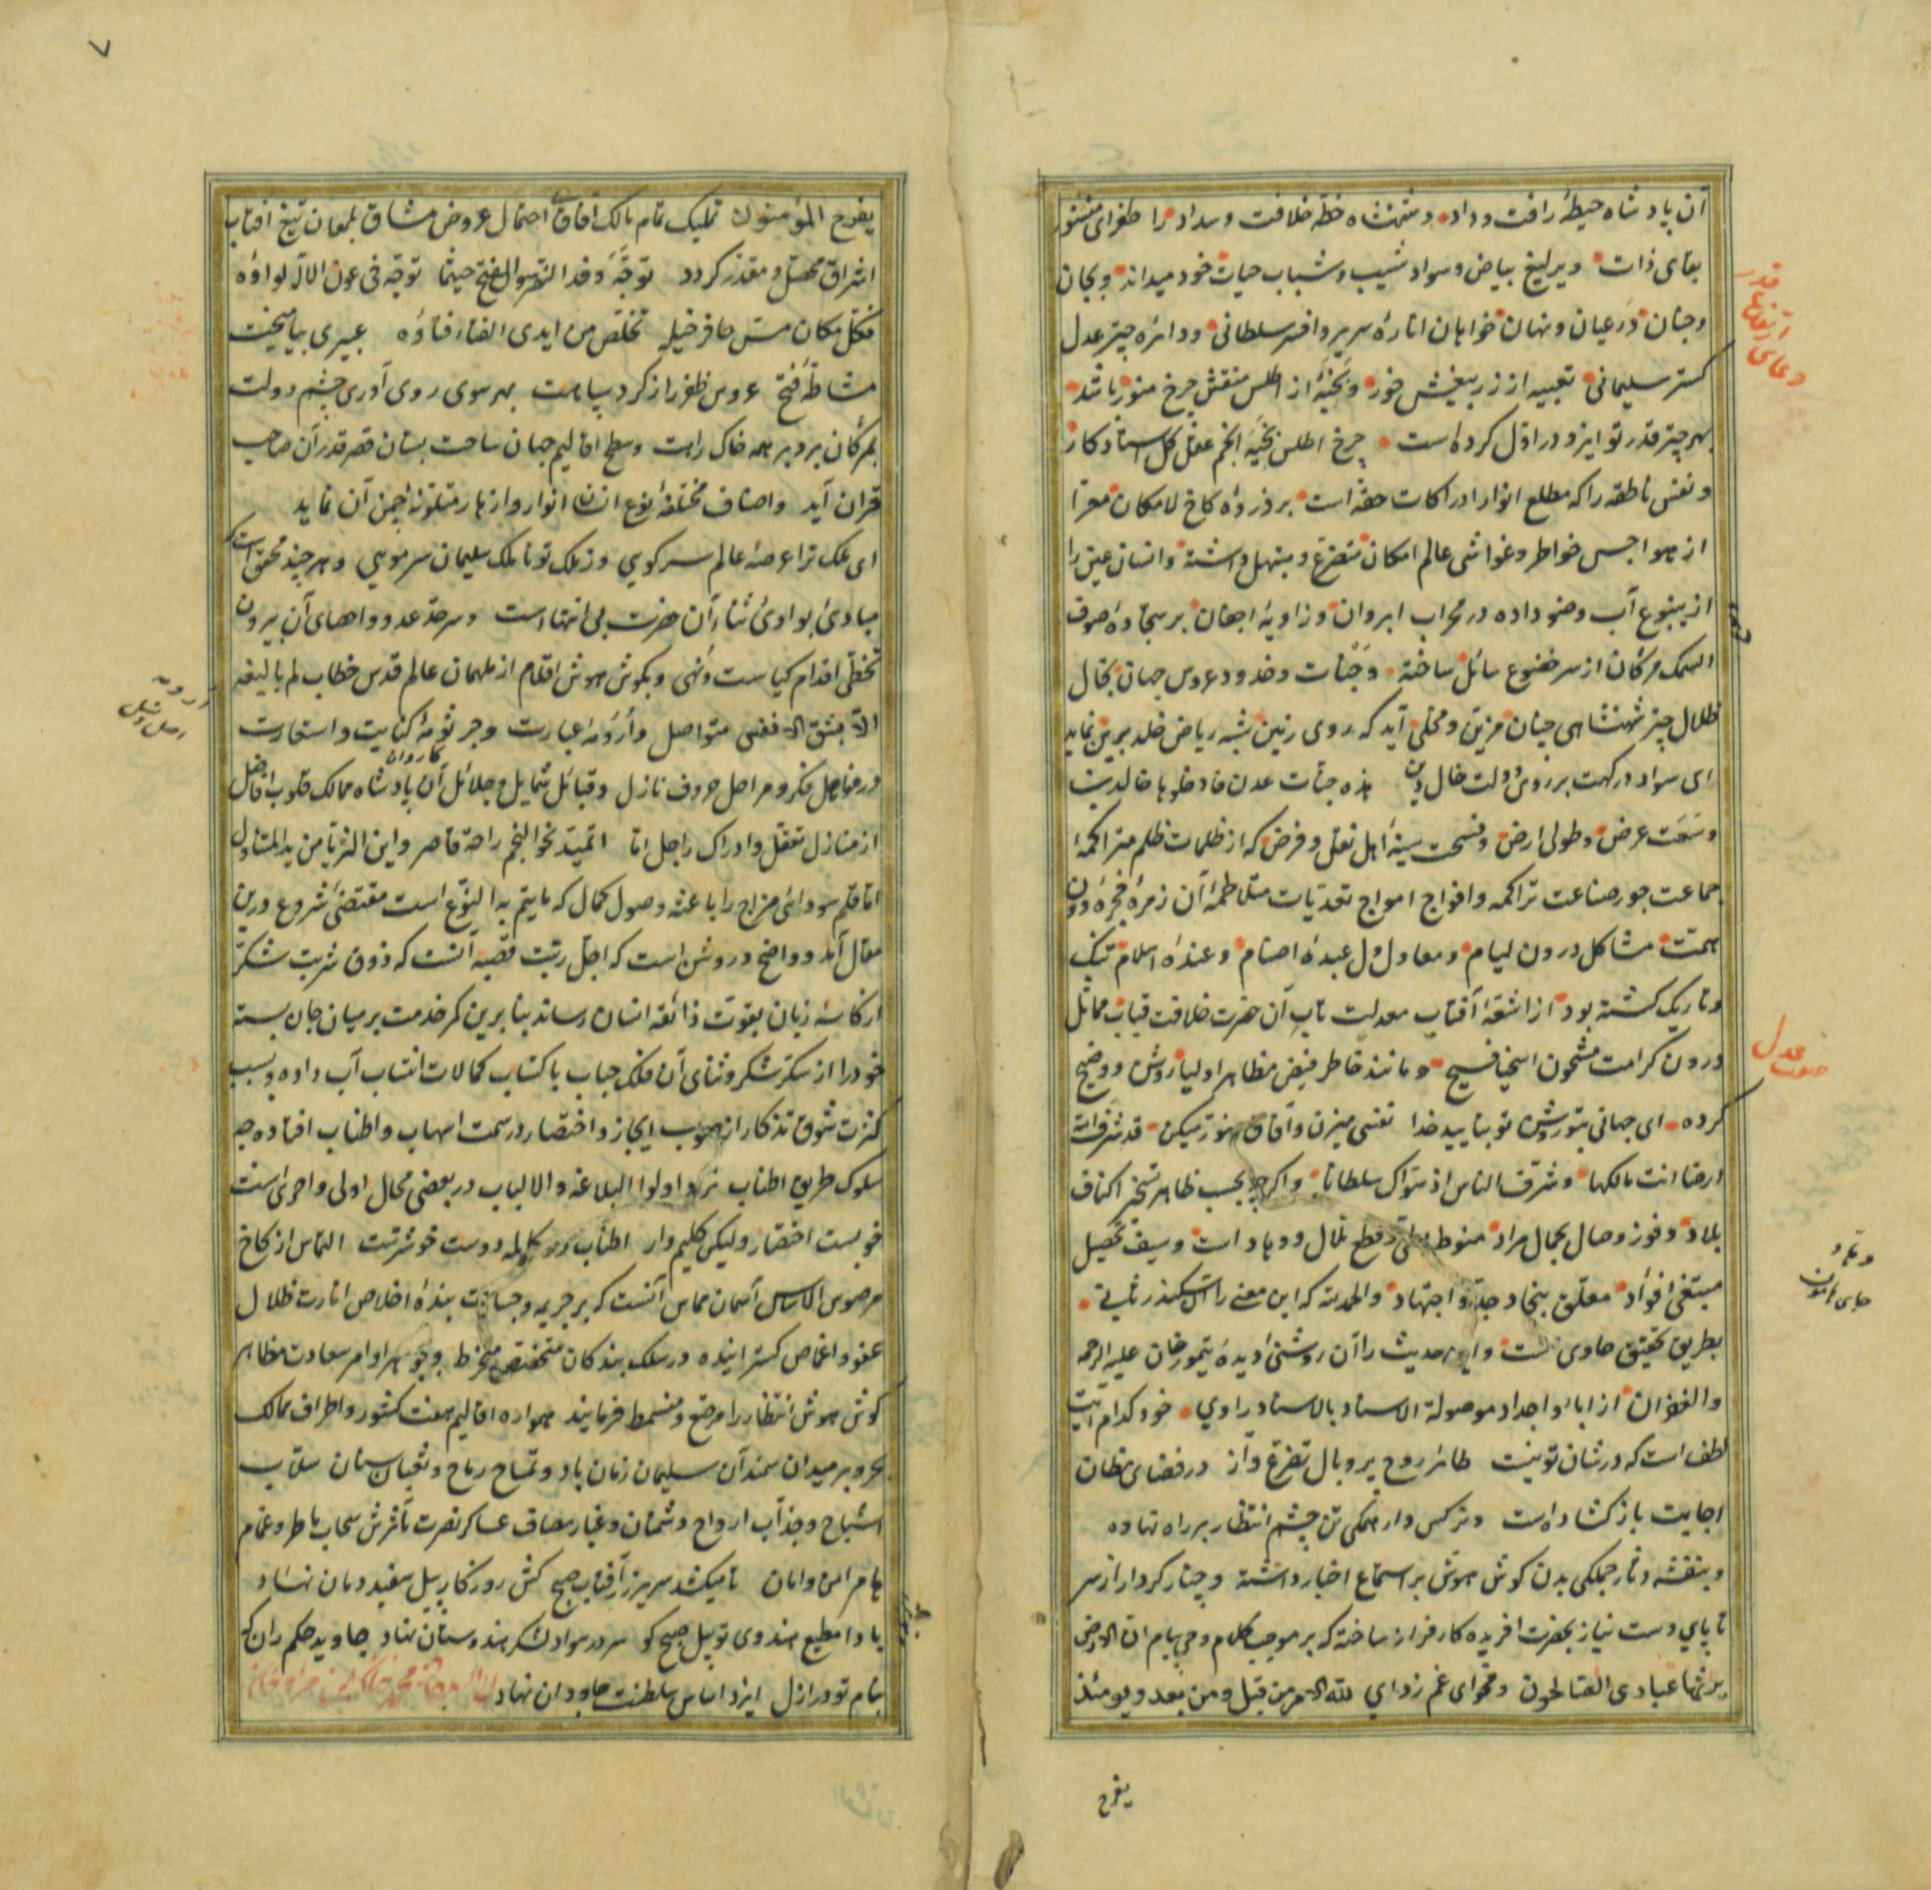 آن پادشاه حیطهٔ رافت و داد و شهنشاه خطهٔ خلافت و سداد را طغرای منشور
بقای ذات و یرلیغ بیاض و سواد شیب و شباب حیات خود میداند و بجان
و جنان در عیان و نهان خواهان انارهٔ سریر و افسر سلطانی و دائره چتر عدل
کستر سلیمانی تعبیه از زر بیغش خور و بخیهٔ از اطلس منقش چرخ منور باشد
بهر چتر قدر تو ایزد در ازل کرده است چرخ اطلس بخیه انجم عقل کل استاد کار
و نفس ناطقه را که مطلع انوار ادراکات حقه است بر ذروهٔ کاخ لامکان معرا
از هواجس خواطر و غواشی عالم امکان متضرع و مبتهل داشته و انسان عین را
از ینبوع آب وضو داده در محراب ابروان و زاویهٔ اجفان بر سجادهٔ صوف
السمک مرکان از سر خضوع سائل ساخته وجنات و خدود عروس جهان بخال
ظلال چتر شهنشاهی چنان مزین و محلی آید که روی زمین شبه ریاض خلد برین نماید
ای سواد درکهت بر روی دولت خال دین هذه جنات عدن فادخلوها خالدین
وسعت عرض و طول ارض و فسحت سینهٔ اهل نفل و فرض که از ظلمات ظلم متراکمهٔ
جماعت جور صناعت تراکمه و افواج امواج تعدیات متلاطمهٔ آن زمرهٔ فجرهٔ دون
همت مشاکل درون لیام و معاول دل عبدهٔ اصنام و عندهٔ اسلام تنک
و تاریک کشته بود از اشعهٔ آفتاب معدلت تاب آن حضرت خلافت قباب مماثل
درون کرامت مشحون اسخیا فسیح و مانند خاطر فیض مظاهر اولیا روشن و وضیح
کرده ای جهانی بتو روشن تو بتایید خدا نفسی میزن و آفاق منور میکن قد شرف الله
ارضا انت مالکها و شرف الناس اذ سواک سلطانا و اکرچه بحسب ظاهر تسخیر اکناف
بلاد و فوز وصال بجمال مراد منوط بطی و قطع تلال و وهاد است و سیف تحصیل
مبتغی افواد معلق بنجاد جد و اجتهاد و الحمدلله که این معنی را آن اسکندر ثانی
بطریق تحقیق حاوی است و این حدیث را آن روشنی دیدهٔ تیمور خان علیه الرحمه
و الغفران از ابا و اجداد موصولة الاسناد بالاسناد راوی خود کدام آیت
لطف است که در شان تو نیست طائر روح پر و بال تضرع و آز در فضای مظان
اجابت باز کشاده است و نرکس وار همکی تن چشم انتظار بر راه نهاده
و بنفشه دثار جملکی بدن کوش هوش بر استماع اخبار داشته و چنار کردار از سر
تا پای دست نیاز بحضرت افریده کار فراز ساخته که بر موجب کلام وحی پیام ان الارض
یرثها عبادی الصالحون و فحوای غم زدای لله الامر من قبل و من بعد و یومئذ
یفرح
قدر
دعای
عدل
۷
یفرح المؤمنون تملیک تمام مالک افاق بی احتمال عروض مشاق بلمعان تیغ افتاب
اشراق محصل و مقدر کردد توجه وفد النصر و الفتح حیثما توجه فی عون الاله لواؤه
فکل مکان مس حافر خیله تخلص من ایدی الفناء فناؤه عبیری بیامیخت
مشاطهٔ فتح عروس ظفر از کرد سپاهت بهر سوی روی آوری چشم دولت
بمرکان برد بر همه خاک راهت و سطح اقالیم جهان ساحت بستان قصر قدر آن صاحب
قران آید و اصناف مختلفهٔ نوع انسان انوار و ازهار متلونهٔ چمن آن نماید
ای ملک ترا عرصهٔ عالم سر کویی وز ملک تو تا ملک سلیمان سر مویی و هر چند محقق است که
مبادئ بوادئ ثناء آن حضرت بی انتها است و سرحد عد و احصای آن بیرون
تخطی اقدام کیاست و نهی و بکوش هوش اقلام از ملهمان عالم قدس خطاب لم بالیغه
الا بشق الانفس متواصل و أرومهٔ عبارت و جرثومهٔ کنایت و استعارت
کاروان
در مفاصل فکر و مراحل حروف نازل و قبائل شمایل و جلائل آن پادشاه ممالک قلوب افاضل
از منازل تعقل و ادراک راحل اتا اتمتد نحو النجم راحة قاصر و این الثریا من ید المتناول
اما قلم سودائی مزاج را باعثه وصول کمال که ما یتم به النوع است مقتضی شروع درین
مقال آمد و واضح و روشن است که اجل رتبت قصبه آنست که ذوق شربت شکر
از کاسهٔ زبان بقوت ذائقه انسان رساند بنابرین کمر خدمت بر میان جان بسته
خود را از سکر شکر و ثنای آن فلک جناب باکتساب کمالات انتساب آب داده و بسبب
کثرت شوق تذکار از صوب ایجاز و اختصار در سمت اسهاب و اطناب افتاده چه
سلوک طریق اطناب نزد اولوا البلاغه و الالباب در بعضی محال اولی و احری است
خوبست اختصار ولیکن کلیم وار اطناب در مکالمه دوست خوشترست التماس از کاخ
مرصوص الاساس آسمان مماس آنست که بر جریمه و جسارت بندهٔ اخلاص انارت ظلال
عفو و اغماص کسترانیده در سلک بندکان متخصص منخرط و بجوهر اوامر سعادت مظاهر
کوش هوش انتظار را مرصع و منسمط فرمایند همواره اقالیم هفت کشور و اطراف ممالک
بحر و بر میدان سمند آن سلیمان زمان باد و تمساح رماح و ثعبان سنان سلاب
اشباح و جذاب ارواح دشمنان و غبار مصاف عساکر نصرت مآثرش سحاب ماطر و غمام
هامر امن و امان تا میکشد سریر زر آفتاب صبح کش روزکار پیل سفید دمان نهاد
بادا مطیع هندوی تو پیل صبح کو سر در سواد لشکر هندوستان نهاد جاوید حکم ران که
بنام تو در ازل ایزد اساس سلطنت جاودان نهاد